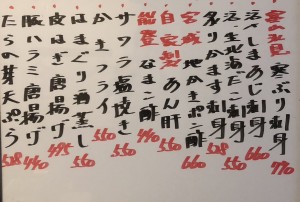 富山氷見 寒ぶり刺身 770
活〆しまあじ刺身 660
活〆北海だこ刺身 550
炙りかます刺身 528
宮城 地かきポン酢 660
自家製 あん肝 550
能登 なまこ酢 440
サワラ塩焼き 550
かきフライ 550
はまぐり酒蒸し 550
皮はぎ唐揚げ 495
豚ハラミ唐揚げ 440
たらの芽天ぷら 528